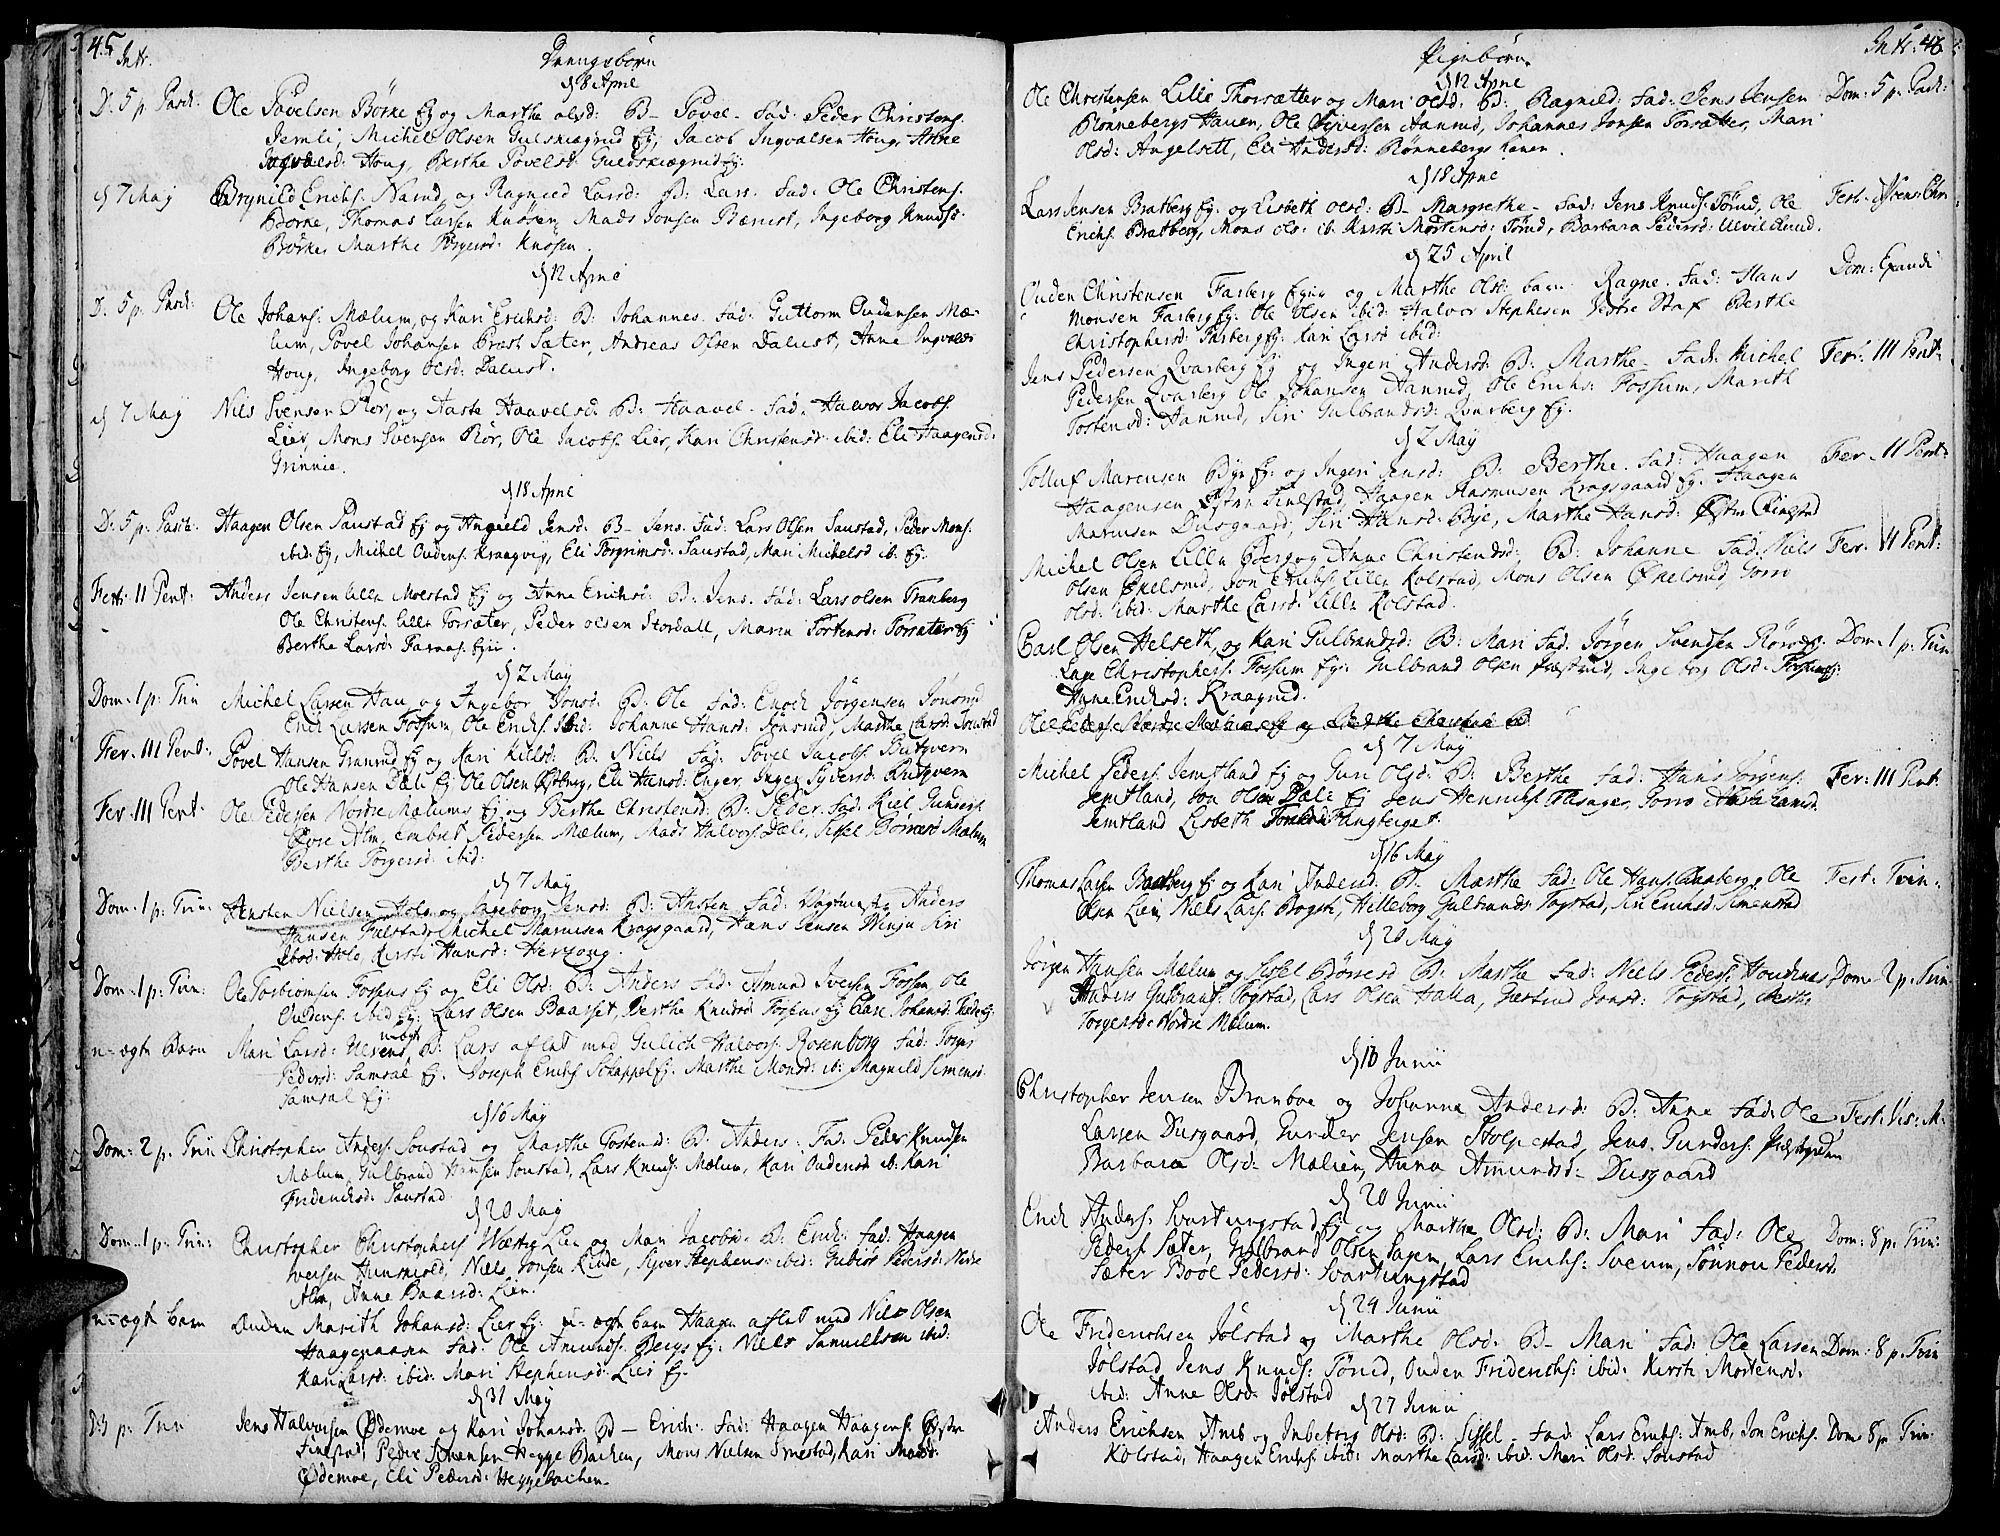 45
Intr.
Drengebörn
d 8 April
D: 5 p. Pasch: Ole Povelsen Börke Ej og Marthe olsd: B- Povel- Fad: Peder Christens.
Jemli, Michel Olsen Gulskiægrud Ej, Jacob Ingvalsen Houg, Anne
Ingvalsd: Houg, Berthe Povelsd: Guldskiægrud Ej.
d 7 May Brynild Erichs. og Ragnild Larsd: B: Lars. Fad: Ole Christens.
Börke, Thomas Larsen Knosen, Mads Jonsen Ingeborg Knudsd:
Börke, Marthe Knosen.
d 12 April
D: 5 p. Pasch: Ole Johans: Mælum, og Kari Erichsd: B: Johannes. Fad: Guttorm Oudensen Mæ-
lum, Povel Johansen Præst Sæter, Andreas Olsen Dalust, Anne Ingvalds
Houg, Ingeborg Olsd: Dalust.
d 7 May Nils Svensen Rör, og Aaste Haavelsd: B: Haavel- Fad: Halvor Jacobs.
Lier, Mons Svensen Rör, Ole Jacobs. Lier, Kari Christensd: ibid: Eli Haagensd:
Grinnie.
d 18 April
D: 5 p: Pasch: Haagen Olsen Saustad Ej og Jensd: B- Jens. Fad: Lars Olsen Saustad, Peder Mons.
ibid: Ej, Michel Oudens. Kraagvig, Eli Torgrimsd: Saustad, Mari Michelsd ib. Ej.
Feri: II Pent: Anders Jensen Lille Molstad Ej og Anne Erichsd: B: Jens. Fad: Lars olsen Tranberg
Ole Christens. Lille Torsæter, Peder olsen Stordall, Maren Tostensd: Torsæter Ej
Berthe Larsd:
d 2 May
Dom: 1 p: Trin Michel Larsen Hau og Ingebor Jonsd: B: Ole Fad: Enoch Jörgensen Jönsrud
Erich Larsen Fossum, Ole Erichs. ibid: Johanne Hansd: Jönsrud, Marthe Larsd: Joustad
Fer. III Pent: Povel Hansen Granrud Ej og Kari Kielsd: B: Niels Fad: Povel Jacobs. Butqvern
Ole Hansen Dæli Ej Ole Olsen Ej, Eli Hansd: Enger, Inger Syversd: Butqvern
Fer. III Pent: Ole Pedersen Nordre Mælum Ej og Berthe Christensd: B: Peder. Fad: Kiel Gunders.
Övre Alm, Embret Pedersen Mælum, Mads Halvors. Dæli, Sissel Börresd Mælum
Berthe Torgersd: ibid:
d 7 May
Dom: 1 p: Trin: Aensten Nielsen Holo og Ingebor Jensd: B: Ansten Fad: Ej Anders
Hansen Michel Marcusen Kragsgaard, Hans Jensen Winju Siri
Holo, Kirsti Hansd: Herzoug.
Dom: 1 p: Trin: Ole Torbiornsen Fossens Ej og Eli Olsd: B: Anders Fad: Amund Iversen Fossen, Ole
Oudens. ibid Ej: Lars Olsen Baarset, Berthe Knudsd Fossens Ej
u-ægte Barn Mari Larsd: Ulvens, B: Lars aflet med Gulich Halvors. Rosenborg Fad: Torger
Peders. Samsal Ej. Joseph Erichs. Schappel Ej. Marthe Monsd: ib: Magnild Simensd.
Samsal Ej:
d 16 May
Dom: 2 p: Trin Christopher Anders. Soustad og Marthe Tostensd: B: Anders: Fad: Peder Knudsen
Mælum, Gulbrand Hansen Soustad, Lars Knuds. Mælum, Kari Oudensd ib: Kari
Friderichsd: Saustad.
d 20 May
Dom: 1 p: Trin: Christopher Christophers. Wæstre Lien og Mari Jacobsd: B. Erich: Fad: Haagen
Iversen Niels Jonsen Kinde, Syver Stephens: ibid: Gubior Pedersd: Nedre
Alm, Anne Baarsd: Lien.
u-ægt barn Ouden Marith Johansd: Lier Ej. u- ægt barn Haagen aflet med Niels Olsen
Haagenaasen Fad: Ole Amunds. Bergs Ej. Niels Samuelsen ibid:
Kari Larsd: ibid: Mari Stephensd: Lier Ej.
d 31 May
p: Trin Jens Halvorsen Ödemoe og Kari Johansd: B- Erich: Fad: Haagen Haagens. Östre
Finstad, Peder Johansen Hegge Bachen, Mons Nielsen Kari
Ödemoe, Eli Pedersd: Heggebachen.
46
Intr:
Pigebörn.
d 12 April
Ole Christensen Lille Thorsætter og Mari olsd: B: Ragnild: Fad: Jens Jensen Dom: 5 p. Pasch:
Rönnebergs Hauen, Ole Syversen Aanrud, Johannes Jonsen Torsætter, Mari
Olsd: Angelsett, Eli Andersd: Rönnebergs hauen.
d 18 April
Lars Jensen Bratberg Ej: og Lisbeth Olsd: B- Margrethe- Fad: Jens Knuds. Törud, Ole Fest: Ascens: Chr:
Erichs. Bratberg, Mons Ols: ib: Kirsti Mortensd: Törud, Barbara Pedersd: Ulvildrud.
d 25 April
Ouden Christensen Farberg Ejer og Marthe Olsd: barn Ragne. Fad: Hans Dom: Exaudi
Monsen Farberg Ej: Ole Olsen ibid: Halvor Stephesen Vestre Staf Berthe
Christophersd: Farberg Ej: Kari Larsd ibid:
Jens Pedersen Qvarberg Ej og Ingeri Andersd: B: Marthe- Fad: Michel Fer. III Pent:
Pedersen Qvarberg Ole Johansen Aanrud, Ole Erichs: Fossum, Marith
Tostensd: Aanrud, Siri Gulbrandsd: Qvarberg Ej.
d 2 May
Tolluf Marcusen Bye Ej: og Ingeri Jensd: B: Berthe. Fad: Haagen Fer. II Pent:
Haagensen Östre Finstad, Haagen Rasmusen Kragsgaard Ej. Haagen
Marcusen Dusgaard, Siri Hansd: Bye, Marthe Hansd: Östre Finstad
Michel Olsen Lille Berg og Anne Christensd: B: Johanne Fad: Niels Fer. II Pent:
Olsen Ökelsrud, Jon Erichs: Lille Kolstad, Mons Olsen Ökelsrud, Gorro
Olsd: ibid: Marthe Larsd: Lille Kolstad.
Carl Olsen Helseth, og Kari Gulbrandsd: B: Mari Fad: Jörgen Svendsen Dom: 1 p: Trin
Lage Christophers. Fossum Ej: Gulbrand Olsen Ingeborg Olsd:
Anne Erichsd: Kraagrud.
Ole Peders. Nordre Mælum Ej og Berthe B.
d 7 May
Michel Peders. Jemtland Ej og Guri Olsd: B: Berthe Fad: Hans Jörgens. Fer: III Pent:
Jemtland, Jon Olsen Dæli Ej Jens Henrichs. Gorro
Jemtland Lisbeth
d 16 May
Thomas Larsen Bratberg Ej og Kari Andersd: B. Marthe Fad: Ole Hans. Ole Fest: Trin:
Olsen Lien, Niels Lars. Hilleborg Gulbrands: Togstad, Siri Erichsd: Simenstad
d 20 May
Jörgen Hansen Mælum og Sissel Börresd B: Marthe Fad: Niels Peders. Houdenes Dom: 2 p: Trin:
Anders Gulbrands: Togstad, Lars Olsen Halla, Giertrud Jonsd: Togstad, Berthe
Torgersd: Nordre Mælum.
d 18 Junii
Christopher Jensen Branboe og Johanna Andersd: B: Anne Fad: Ole Fest: Vis: M:
Larsen Dusgaard, Gunder Jensen Stolpestad, Jens Gunders.
Barbara Olsd: Mælien, Anna Amundsd: Dusgaard
d 20 Junii
Erich Anders. Svartungstad Ej og Marthe Olsd: B: Mari Fad: Ole Dom: 8 p: Trin:
Peders. Sæter, Gulbrand Olsen Lars Erichs: Sveum, Sönnou Pedersd.
Sæter Boel Pedersd: Svartungstad
d 24 Junii
Ole Friderichsen Jölstad og Marthe Olsd: B- Mari Fad: Ole Larsen Dom: 8 p: Trin
Jölstad, Jens Knuds: Törud, Ouden Friderichs: ibid: Kirsti Mortensd.
ibid: Anne Olsd: Jölstad
d 27 Junii
Anders Erichsen Amb og Inbeborg Olsd: B: Sissel- Fad: Lars Erichs: Amb, Jon Erichs. Dom 8 p: Trin:
Kolstad, Haagen Erichs: ibid: Marthe Larsd: ibid. Mari Olsd: Soustad